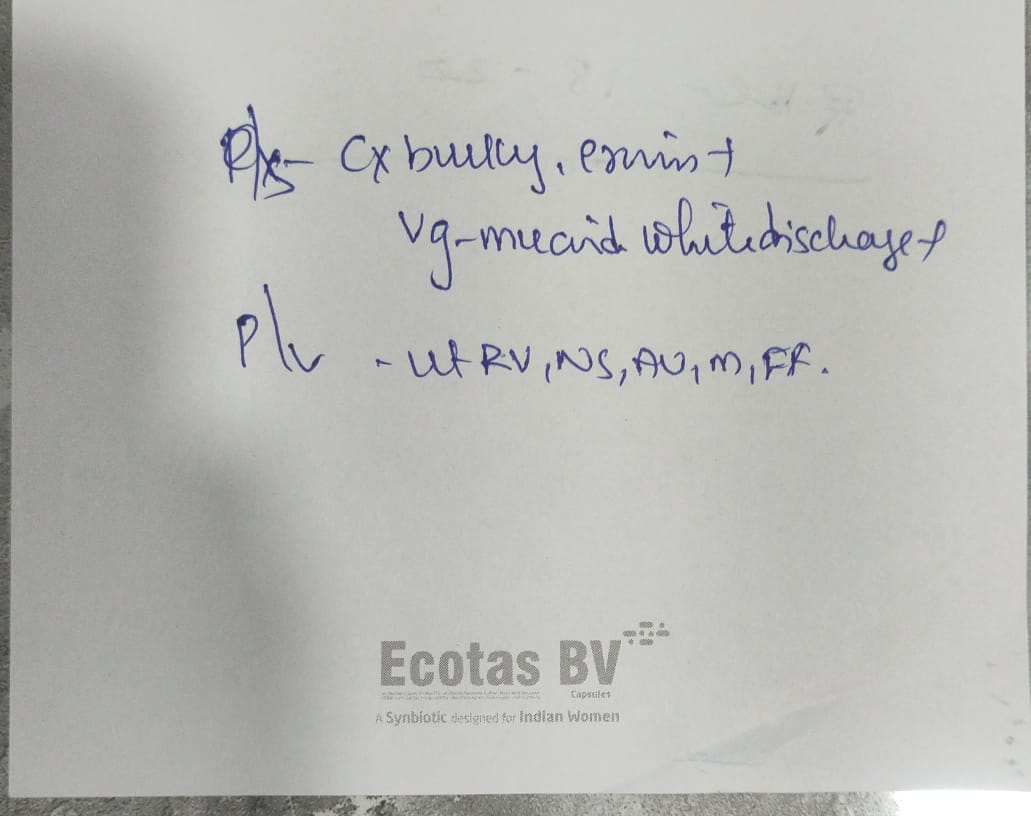 P/s- Cx bulky, erosion +
Vg-mucoid white discharge +
P/v - Ut RV, NS, AV, M, FF.
Ecotas BV
Capsules
A Synbiotic designed for Indian Women